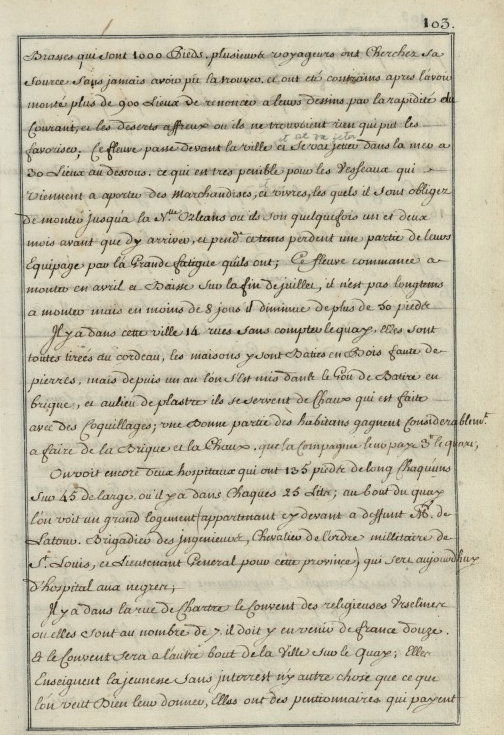 103.
Brasses qui sont 1000 Pieds, plusieurs voyageurs ont Cherchez sa
source sans jamais avoir pû la trouver, et ont eté contrains apres l'avoir
monté plus de 900 Lieux de renoncer a leurs dessins, par la rapidité du
Courant, et les deserts affreux ou ils ne trouvoient rien qui put les
favoriser; Ce fleuve passe devant la ville et se vat jetter dans la mer a
30 Lieux au dessous. ce qui est tres penible pour les Vesseaux qui
viennent a aporter des Marchandises, et vivres, les quels il sont obligez
de monter jusqu'a la N.lle Orleans ou ils son quelquefois un et deux
mois avant que d'y arriver, et pend.t ce tems perdent une partie de leurs
Equipage par la Grande fatigue qu'ils ont; Ce fleuve commance a
monter en avril et Baisse sur la fin de juillet, il n'est pas longtems
a monter mais en moins de 8 jours il diminue de plus de 50 pieds
Il y a dans cette ville 14 rues sans compter le quay, Elles sont
toutes tirées au cordeau, les maisons y sont Baties en Bois faute de
pierres, mais depuis un an l'on s'est mis dans le Gou de Batire en
brique, et aulieu de plastre ils se servent de Chaux qui est faite
avec des Coquillages; une Bonne partie des habitans gagnent Considerablem.t
a faire de la Brique et la Chaux, que la Compagnie leur paye 3.tt le quart,
On voit encore deux hospitaux qui ont 135 pieds de long Chaquuns
sur 45 de large, ou il y a dans Chaques 25 Lits; au bout du quay
l'on voit un grand logement (appartenant cy devant a deffunt M.r de
Latour. Brigadier des Ingenieurs, Chevalier de l'ordre millitaire de
S.t Louis, et Lieutenant General pour cette province) qui sert aujourdhuy
d'hospital aux negres;
Il y a dans la rue de Chartre le Convent des religieuses Urselines
ou elles sont au nombre de 7. il doit y en venir de france douze.
et le Convent sera a l'autre bout de la Ville sur le quay; Elles
Enseignent la jeunesse sans interrest n'y autre chose que ce que
l'on veut Bien leur donner, Elles ont des pentionnaires qui payent